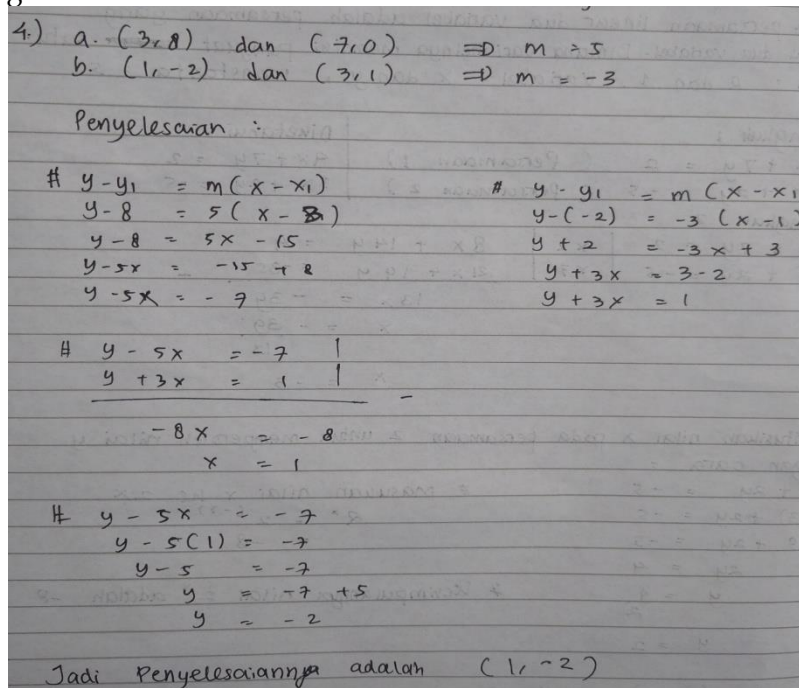 4.) a. (3, 8) dan (7, 0) ⇒ m = 5
b. (1, -2) dan (3, 1) ⇒ m = -3
Penyelesaian :
# y - y₁ = m (x - x₁)
y - 8 = 5 (x - 3)
y - 8 = 5x - 15
y - 5x = -15 + 8
y - 5x = - 7
# y - y₁ = m (x - x₁
y - (-2) = -3 (x - 1)
y + 2 = -3x + 3
y + 3x = 3 - 2
y + 3x = 1
# y - 5x = - 7 |
y + 3x = 1 |
-
-8x = - 8
x = 1
# y - 5x = - 7
y - 5(1) = -7
y - 5 = -7
y = -7 + 5
y = - 2
Jadi Penyelesaiannya adalah (1, -2)